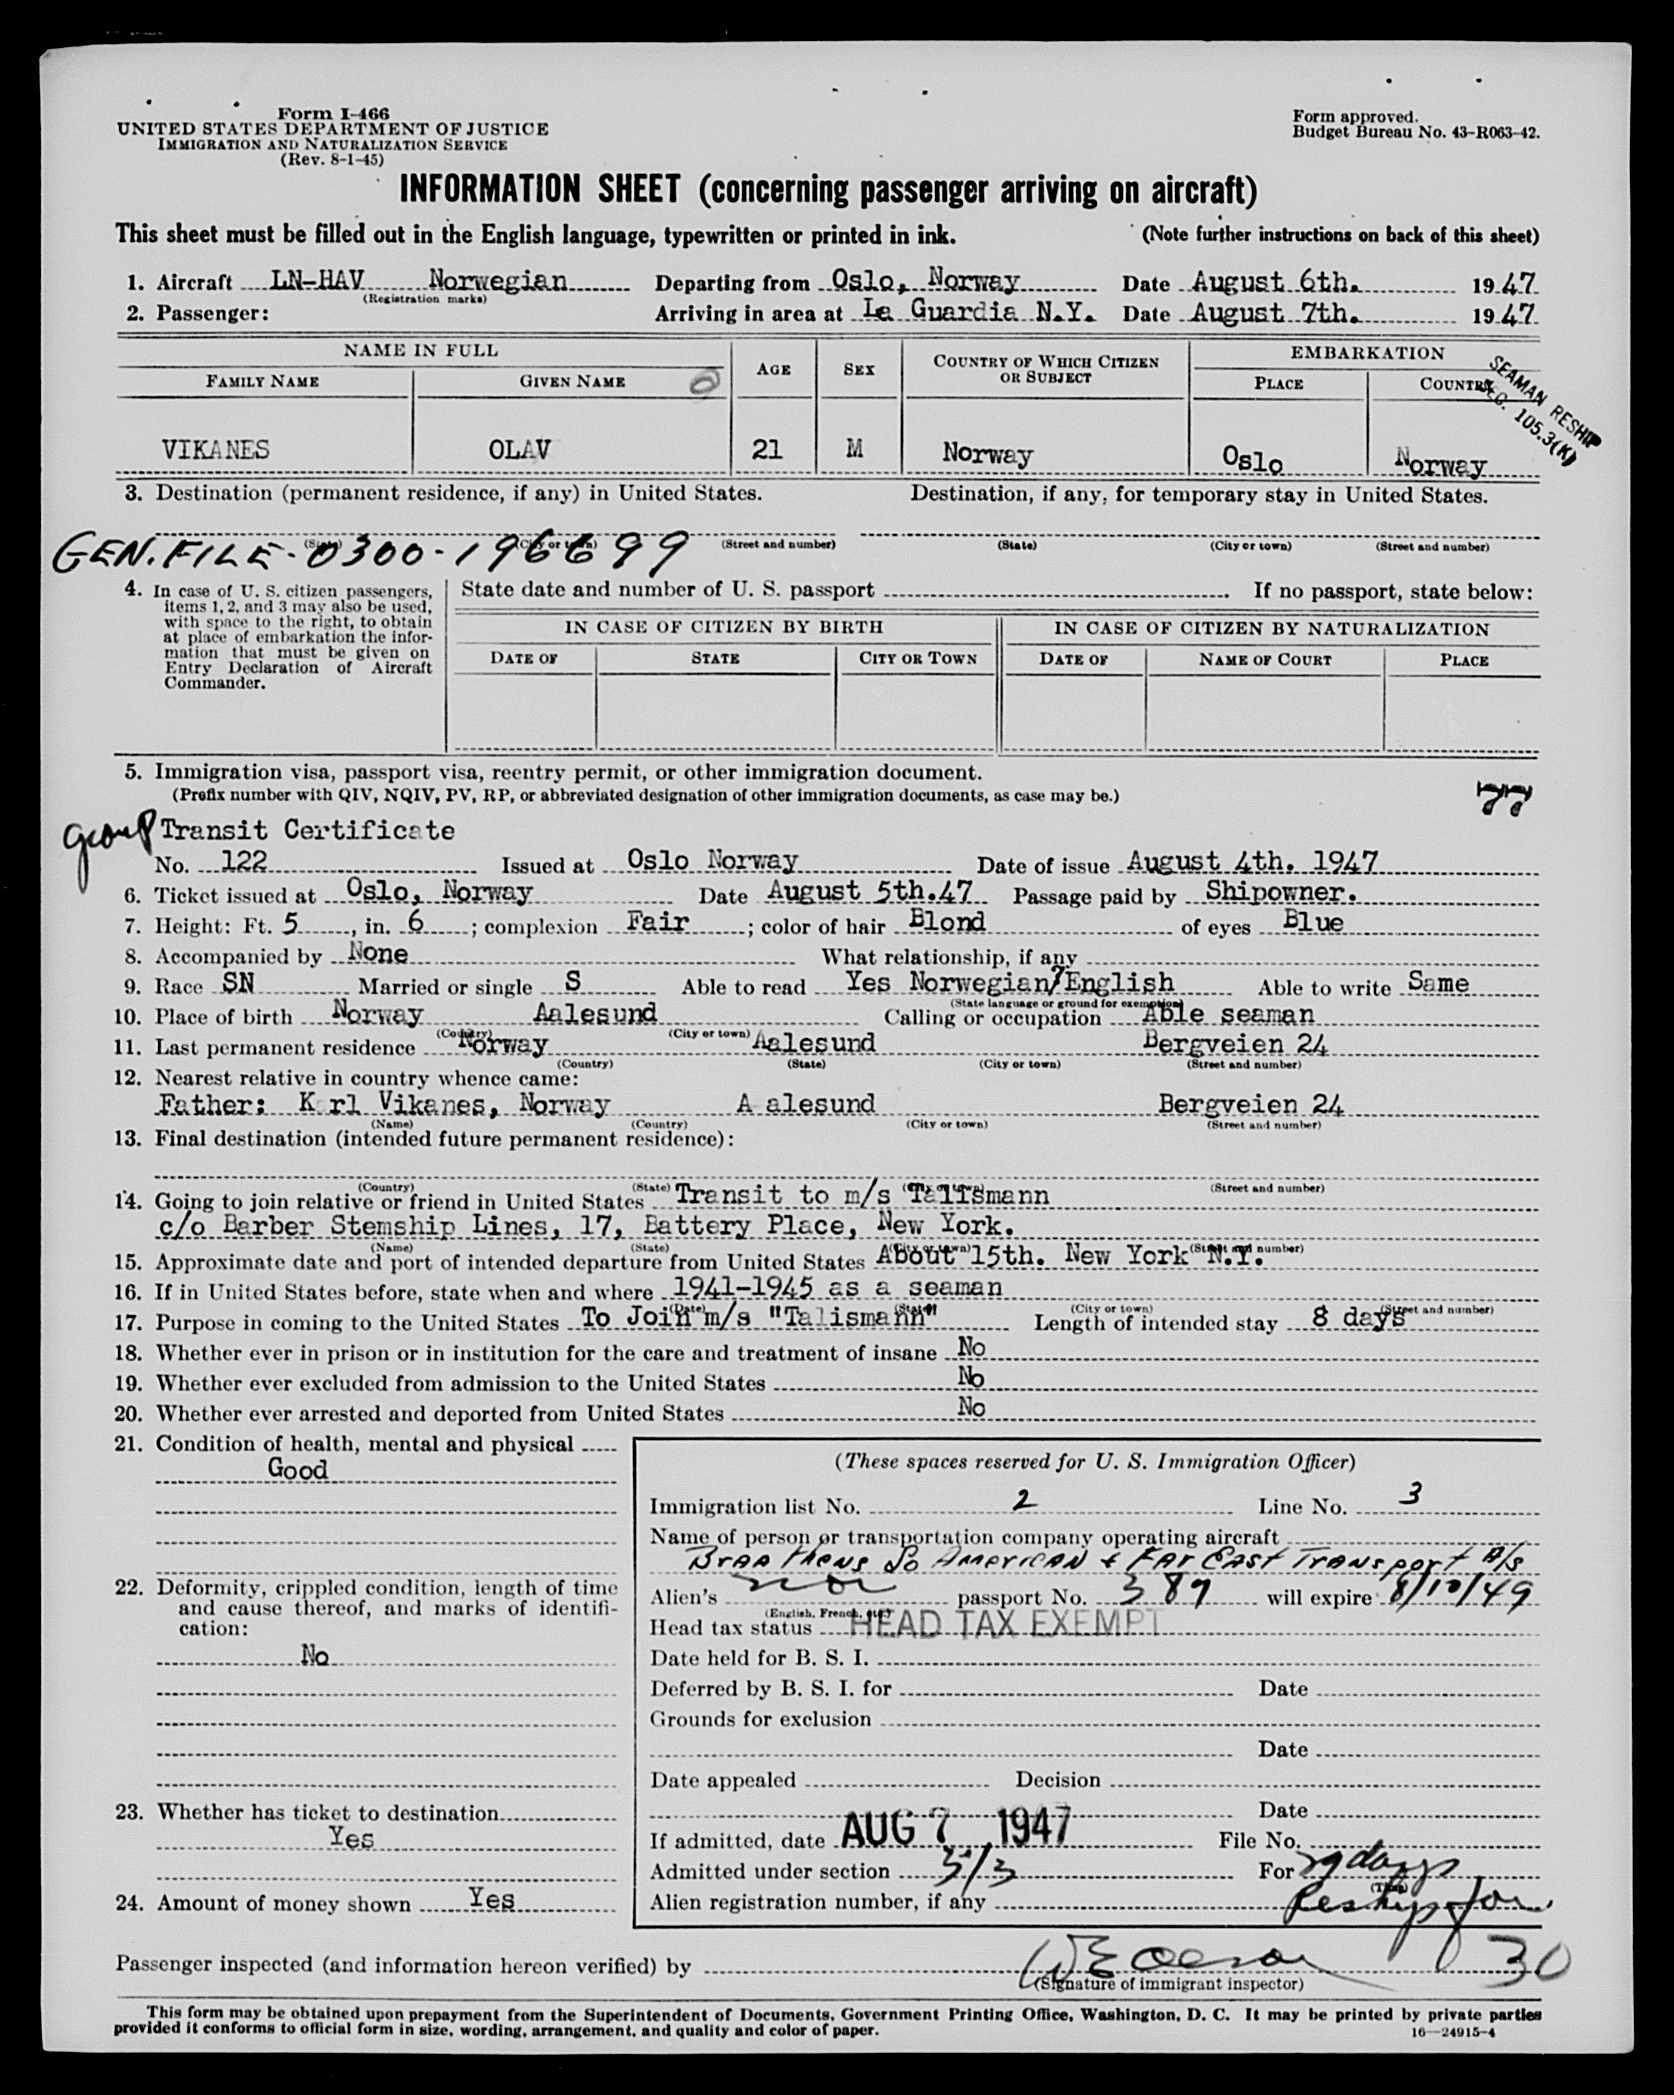 Form I-466
UNITED STATES DEPARTMENT OF JUSTICE
IMMIGRATION AND NATURALIZATION SERVICE
(Rev. 8-1-45)
Form approved.
Budget Bureau No. 43-R063-42.
INFORMATION SHEET (concerning passenger arriving on aircraft)
This sheet must be filled out in the English language, typewritten or printed in ink. (Note further instructions on back of this sheet)
1. Aircraft LN-HAV Norwegian Departing from Oslo, Norway Date August 6th. 1947
(Registration marks)
2. Passenger: Arriving in area at La Guardia N.Y. Date August 7th. 1947
NAME IN FULL AGE SEX COUNTRY OF WHICH CITIZEN OR SUBJECT EMBARKATION
FAMILY NAME GIVEN NAME PLACE COUNTRY
SEAMAN RESHIP
SEC. 105.3(K)
VIKANES OLAV 21 M Norway Oslo Norway
3. Destination (permanent residence, if any) in United States. Destination, if any, for temporary stay in United States.
(State) (City or town) (Street and number) (State) (City or town) (Street and number)
GEN. FILE - 0300-196699
4. In case of U. S. citizen passengers, items 1, 2, and 3 may also be used, with space to the right, to obtain at place of embarkation the information that must be given on Entry Declaration of Aircraft Commander.
State date and number of U. S. passport If no passport, state below:
IN CASE OF CITIZEN BY BIRTH IN CASE OF CITIZEN BY NATURALIZATION
DATE OF STATE CITY OR TOWN DATE OF NAME OF COURT PLACE
5. Immigration visa, passport visa, reentry permit, or other immigration document.
(Prefix number with QIV, NQIV, PV, RP, or abbreviated designation of other immigration documents, as case may be.)
77
group Transit Certificate
No. 122 Issued at Oslo Norway Date of issue August 4th. 1947
6. Ticket issued at Oslo, Norway Date August 5th.47 Passage paid by Shipowner.
7. Height: Ft. 5, in. 6; complexion Fair; color of hair Blond of eyes Blue
8. Accompanied by None What relationship, if any
9. Race SN Married or single S Able to read Yes Norwegian/English Able to write Same
(State language or ground for exemption)
10. Place of birth Norway Aalesund Calling or occupation Able seaman
(Country) (City or town)
11. Last permanent residence Norway Aalesund Bergveien 24
(Country) (State) (City or town) (Street and number)
12. Nearest relative in country whence came:
Father: K rl Vikanes, Norway A alesund Bergveien 24
(Name) (Country) (City or town) (Street and number)
13. Final destination (intended future permanent residence):
(Country) (State) (City or town) (Street and number)
14. Going to join relative or friend in United States Transit to m/s Talismann
c/o Barber Stemship Lines, 17, Battery Place, New York.
(Name) (State) (City or town) (Street and number)
15. Approximate date and port of intended departure from United States About 15th. New York N.Y.
16. If in United States before, state when and where 1941-1945 as a seaman
(Date) (State) (City or town) (Street and number)
17. Purpose in coming to the United States To Join m/s "Talismann" Length of intended stay 8 days
18. Whether ever in prison or in institution for the care and treatment of insane No
19. Whether ever excluded from admission to the United States No
20. Whether ever arrested and deported from United States No
21. Condition of health, mental and physical
Good
22. Deformity, crippled condition, length of time and cause thereof, and marks of identification:
No
23. Whether has ticket to destination
Yes
24. Amount of money shown Yes
(These spaces reserved for U. S. Immigration Officer)
Immigration list No. 2 Line No. 3
Name of person or transportation company operating aircraft
Braathens So American & Far East Transport A/S
Alien's nor passport No. 389 will expire 8/10/49
(English, French, etc.)
Head tax status HEAD TAX EXEMPT
Date held for B. S. I.
Deferred by B. S. I. for Date
Grounds for exclusion
Date
Date appealed Decision
Date
If admitted, date AUG 7 1947 File No.
Admitted under section 3/3 For 29 days
(Time)
Alien registration number, if any
Reship for
30
Passenger inspected (and information hereon verified) by
(Signature of immigrant inspector)
This form may be obtained upon prepayment from the Superintendent of Documents, Government Printing Office, Washington, D. C. It may be printed by private parties
provided it conforms to official form in size, wording, arrangement, and quality and color of paper.
16—24915-4